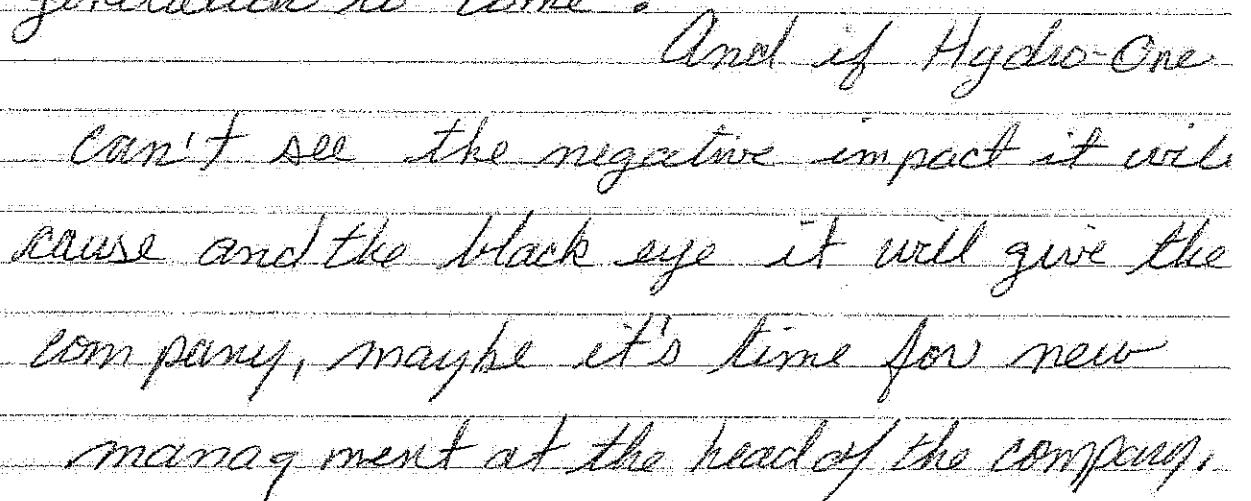 generation to come.
And if Hydro-One
can't see the negative impact it will
cause and the black eye it will give the
company, maybe it's time for new
managment at the head of the company.